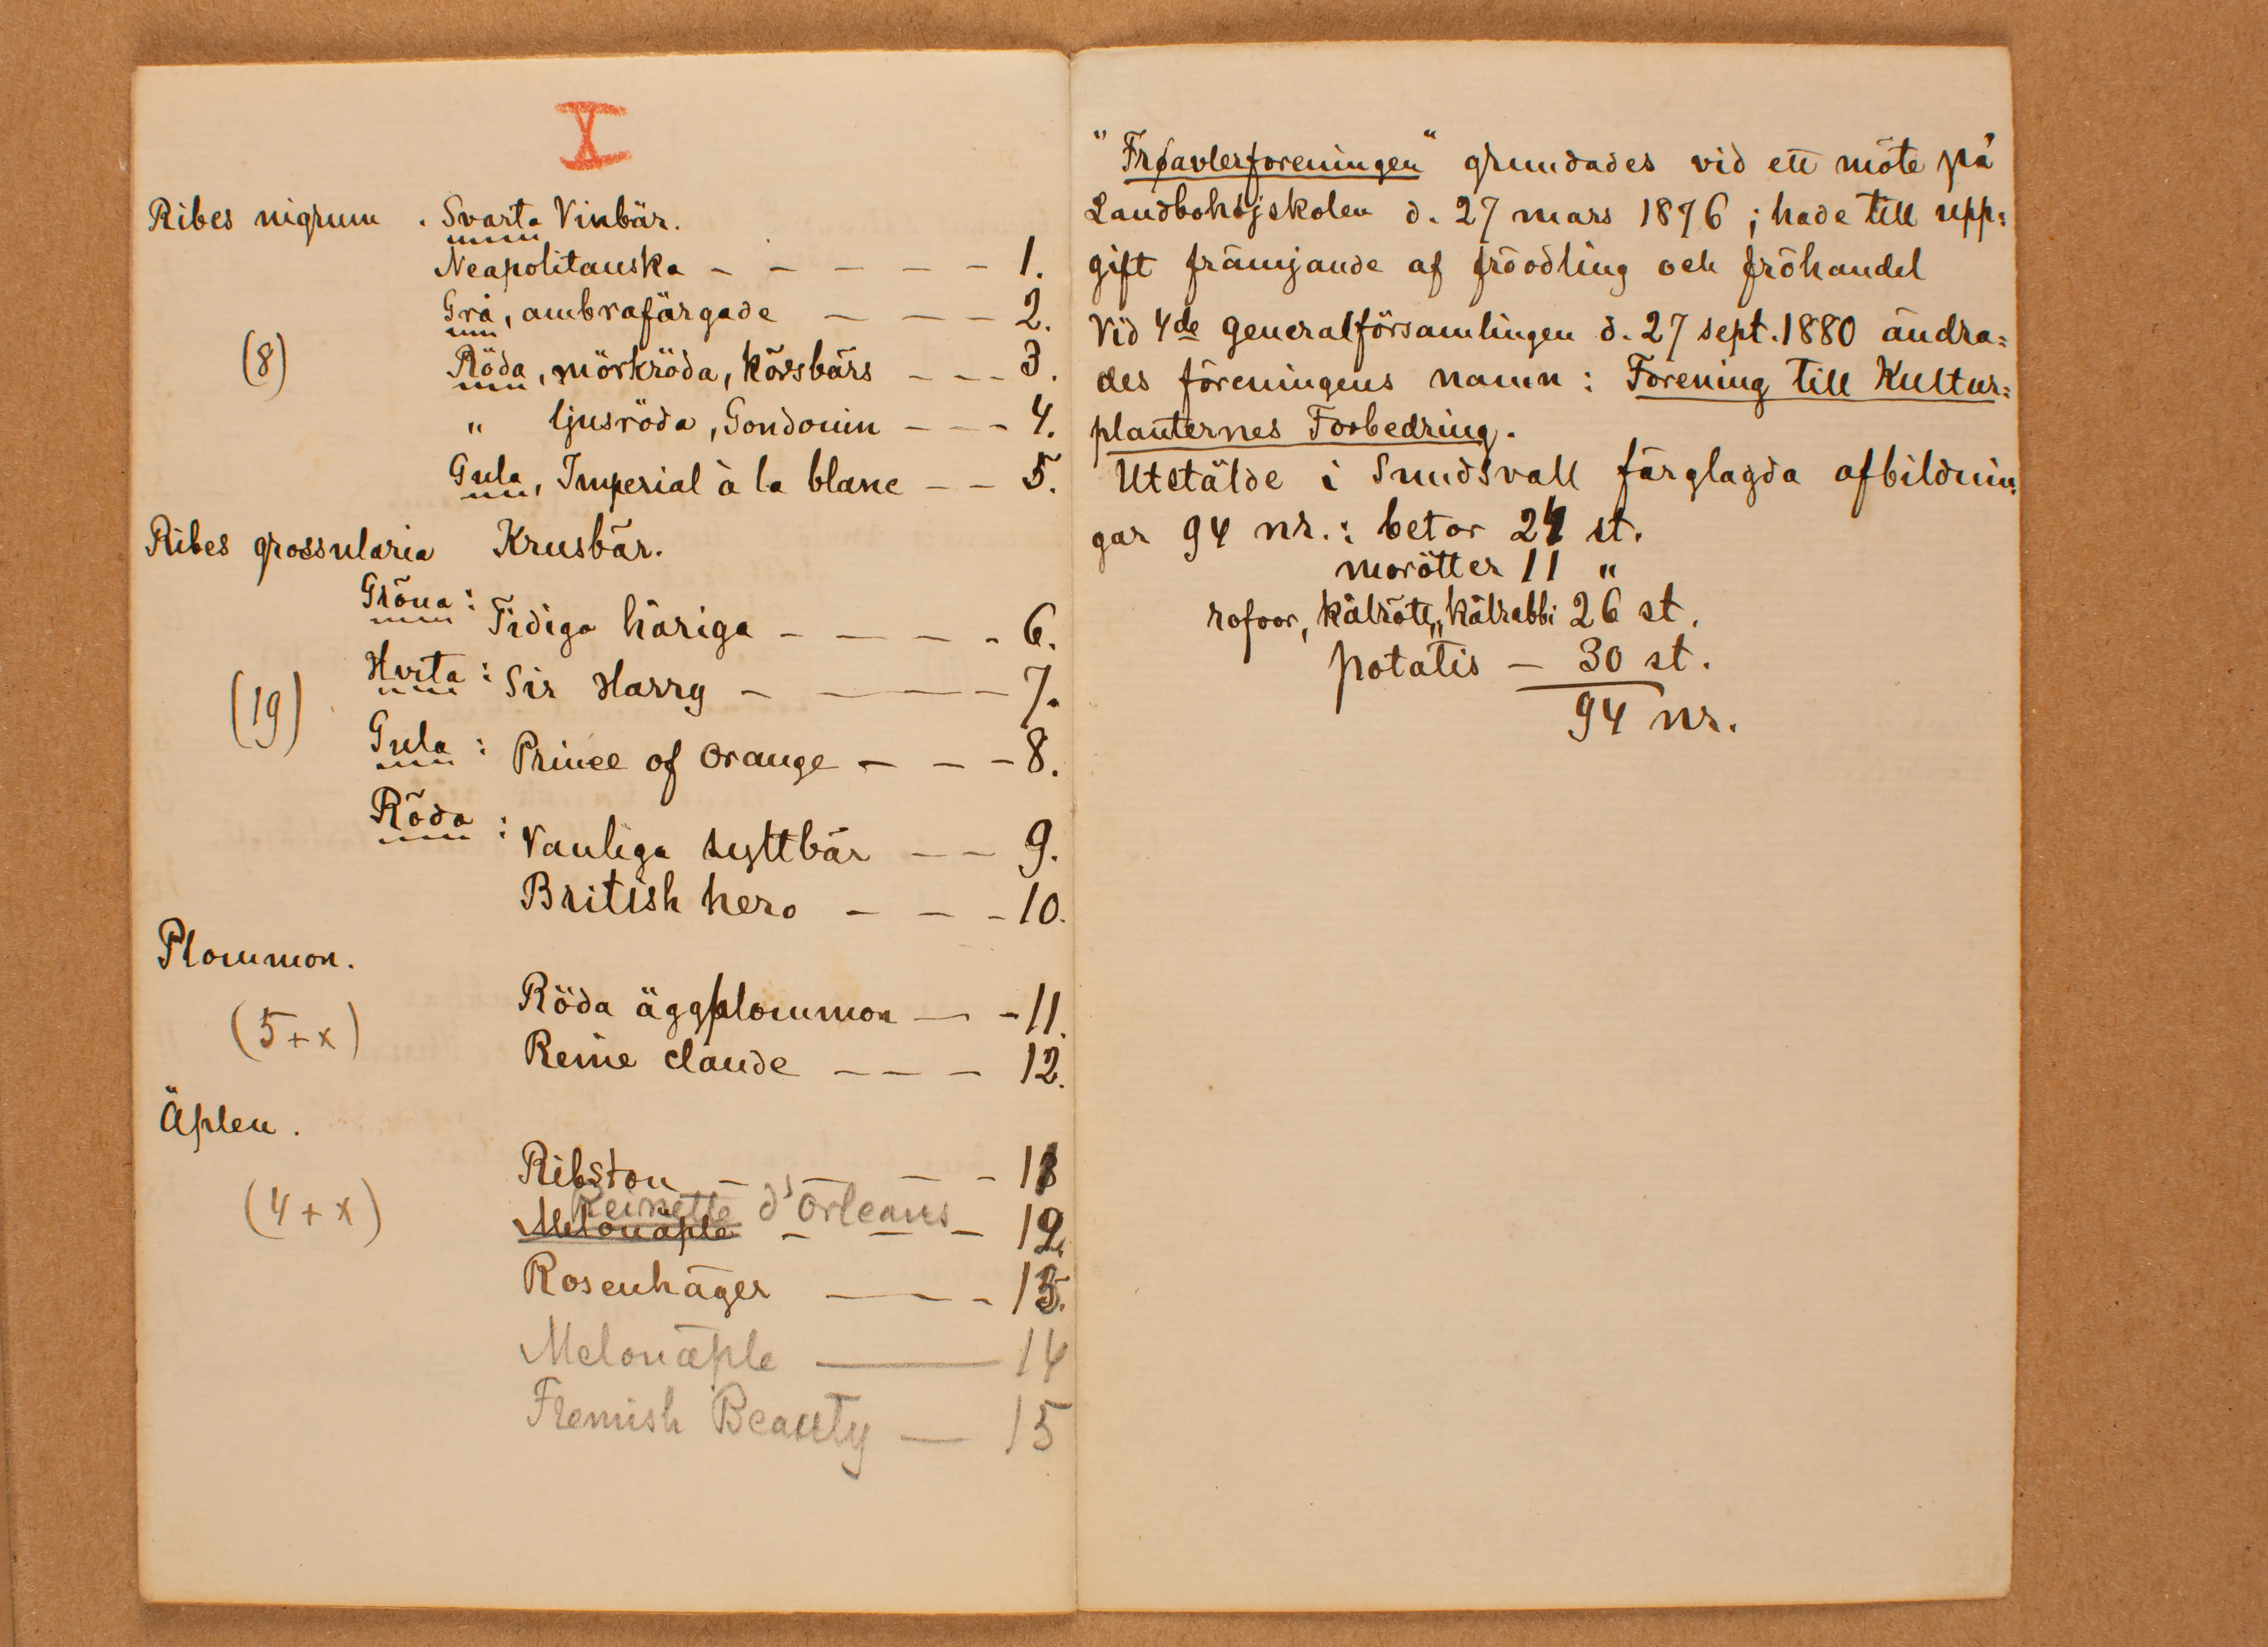 X
Ribes nigrum . Svarta Vinbär.
Neapolitanska – – – – – 1.
Grå, ambrafärgade – – – 2.
(8)
Röda, mörkröda, körsbärs – – – 3.
" ljusröda, Gondouin – – – 4.
Gula, Imperial à la blanc – – 5.
Ribes grossularia Krusbär.
Gröna: Tidiga håriga – – – – 6.
Hvita: Sir Harry – – – – 7.
(19)
Gula: Prince of orange – – – 8.
Röda: Vanliga syltbär – – 9.
British hero – – – 10.
Plommon.
Röda äggplommon – – 11.
(5+x)
Reine claude – – – 12.
Äplen.
Ribston – – – – 1
Reinette d'Orleans
(4+x)
Melonäple – – – 12.
Rosenhäger – – – 13.
Melonäple – 14
Flemish Beauty – 15
"Frøavlerforeningen" grundades vid ett möte på
Landbohöjskolen d. 27 mars 1876; hade till upp=
gift främjande af fröodling och fröhandel
Vid 4de generalförsamlingen d. 27 sept. 1880 ändra=
des föreningens namn: Forening till Kultur=
planternes Forbedring.
Utstälde i Sundsvall färglagda afbildnin=
gar 94 nr.: betor 27 st.
morötter 11 "
rofvor, kålrötter, kålrabbi 26 st.
potatis – 30 st.
94 nr.